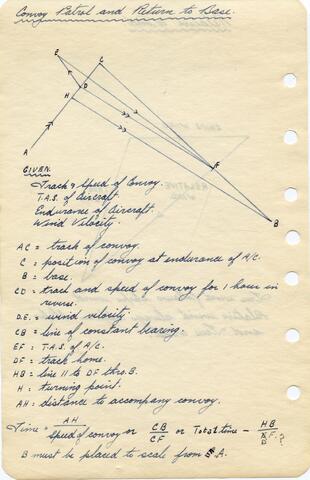 Convoy Patrol and Return to Base.
E
C
D
H
F
A
B
GIVEN.
Track & Speed of Convoy.
T.A.S. of Aircraft.
Endurance of Aircraft.
Wind Velocity.
AC = track of convoy.
C = position of convoy at endurance of A/C.
B = base.
CD = track and speed of convoy for 1 hour in
reverse.
D.E. = wind velocity.
CB = line of constant bearing.
EF = T.A.S. of A/C.
DF = track home.
HB = line 11 to DF thro. B.
H = turning point.
AH = distance to accompany convoy.
Time = AH / Speed of convoy or CB / CF or Total time - HB / F. ?
D
B must be placed to scale from A.